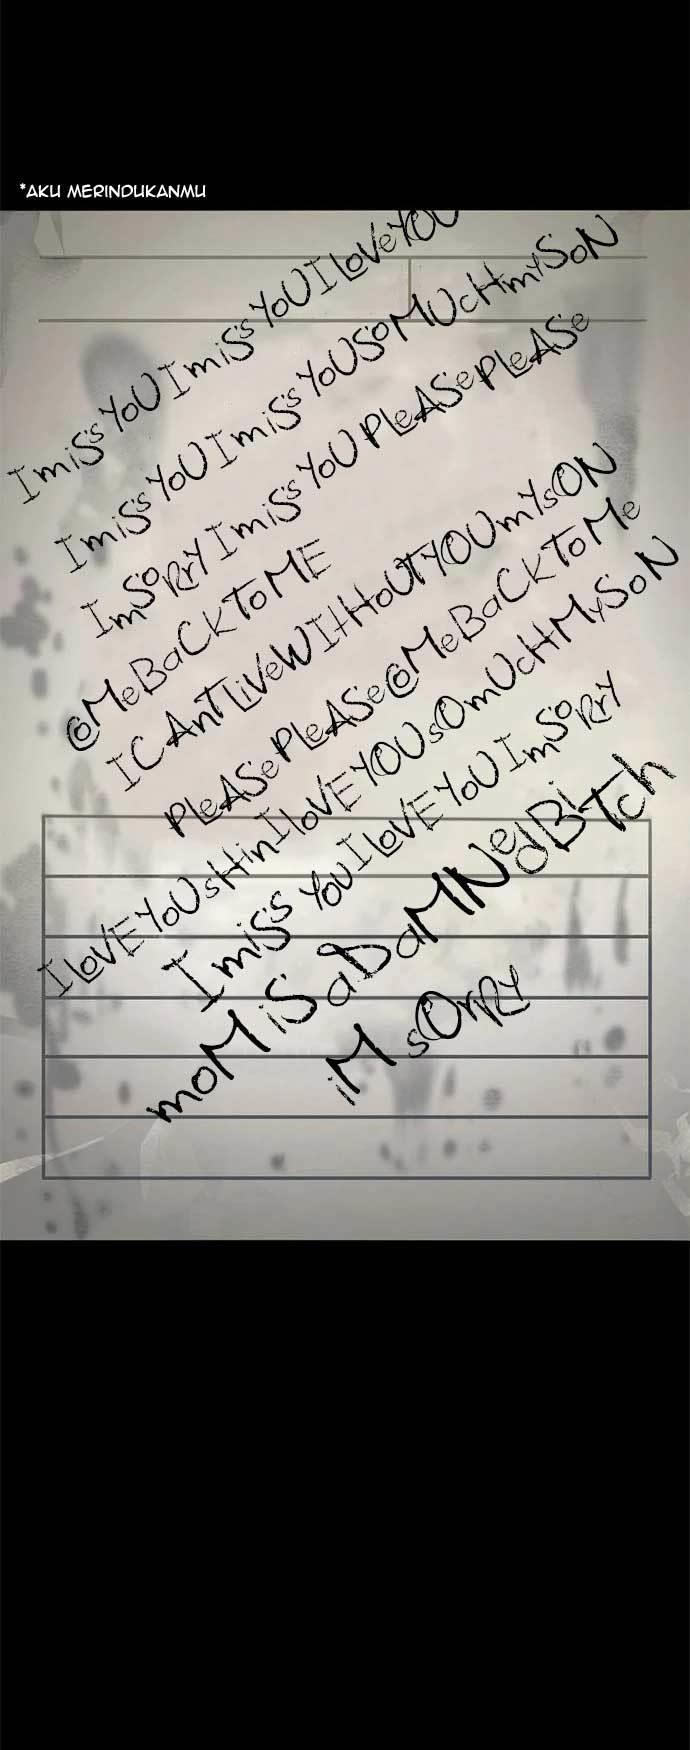 *AKU MERINDUKANMU
I miSs YoU I miSs YoU I LoVeYOU
I miSs YoU I miSs YoU SoMUcH mySoN
I mSoRrY I miSs YoU PLeASe PLeASe
@MeBaCkToME
I CAnTLiVeWItHoUTYOU mYsON
PLeASe PLeASe @MeBaCkToMe
I LoVE YoU sHin I LoVE YOU sOmUcH MySoN
I miSs YoU I LoVE YoU I mSoRrY
moM iS aDaMNedBiTch
iM sOrrRY